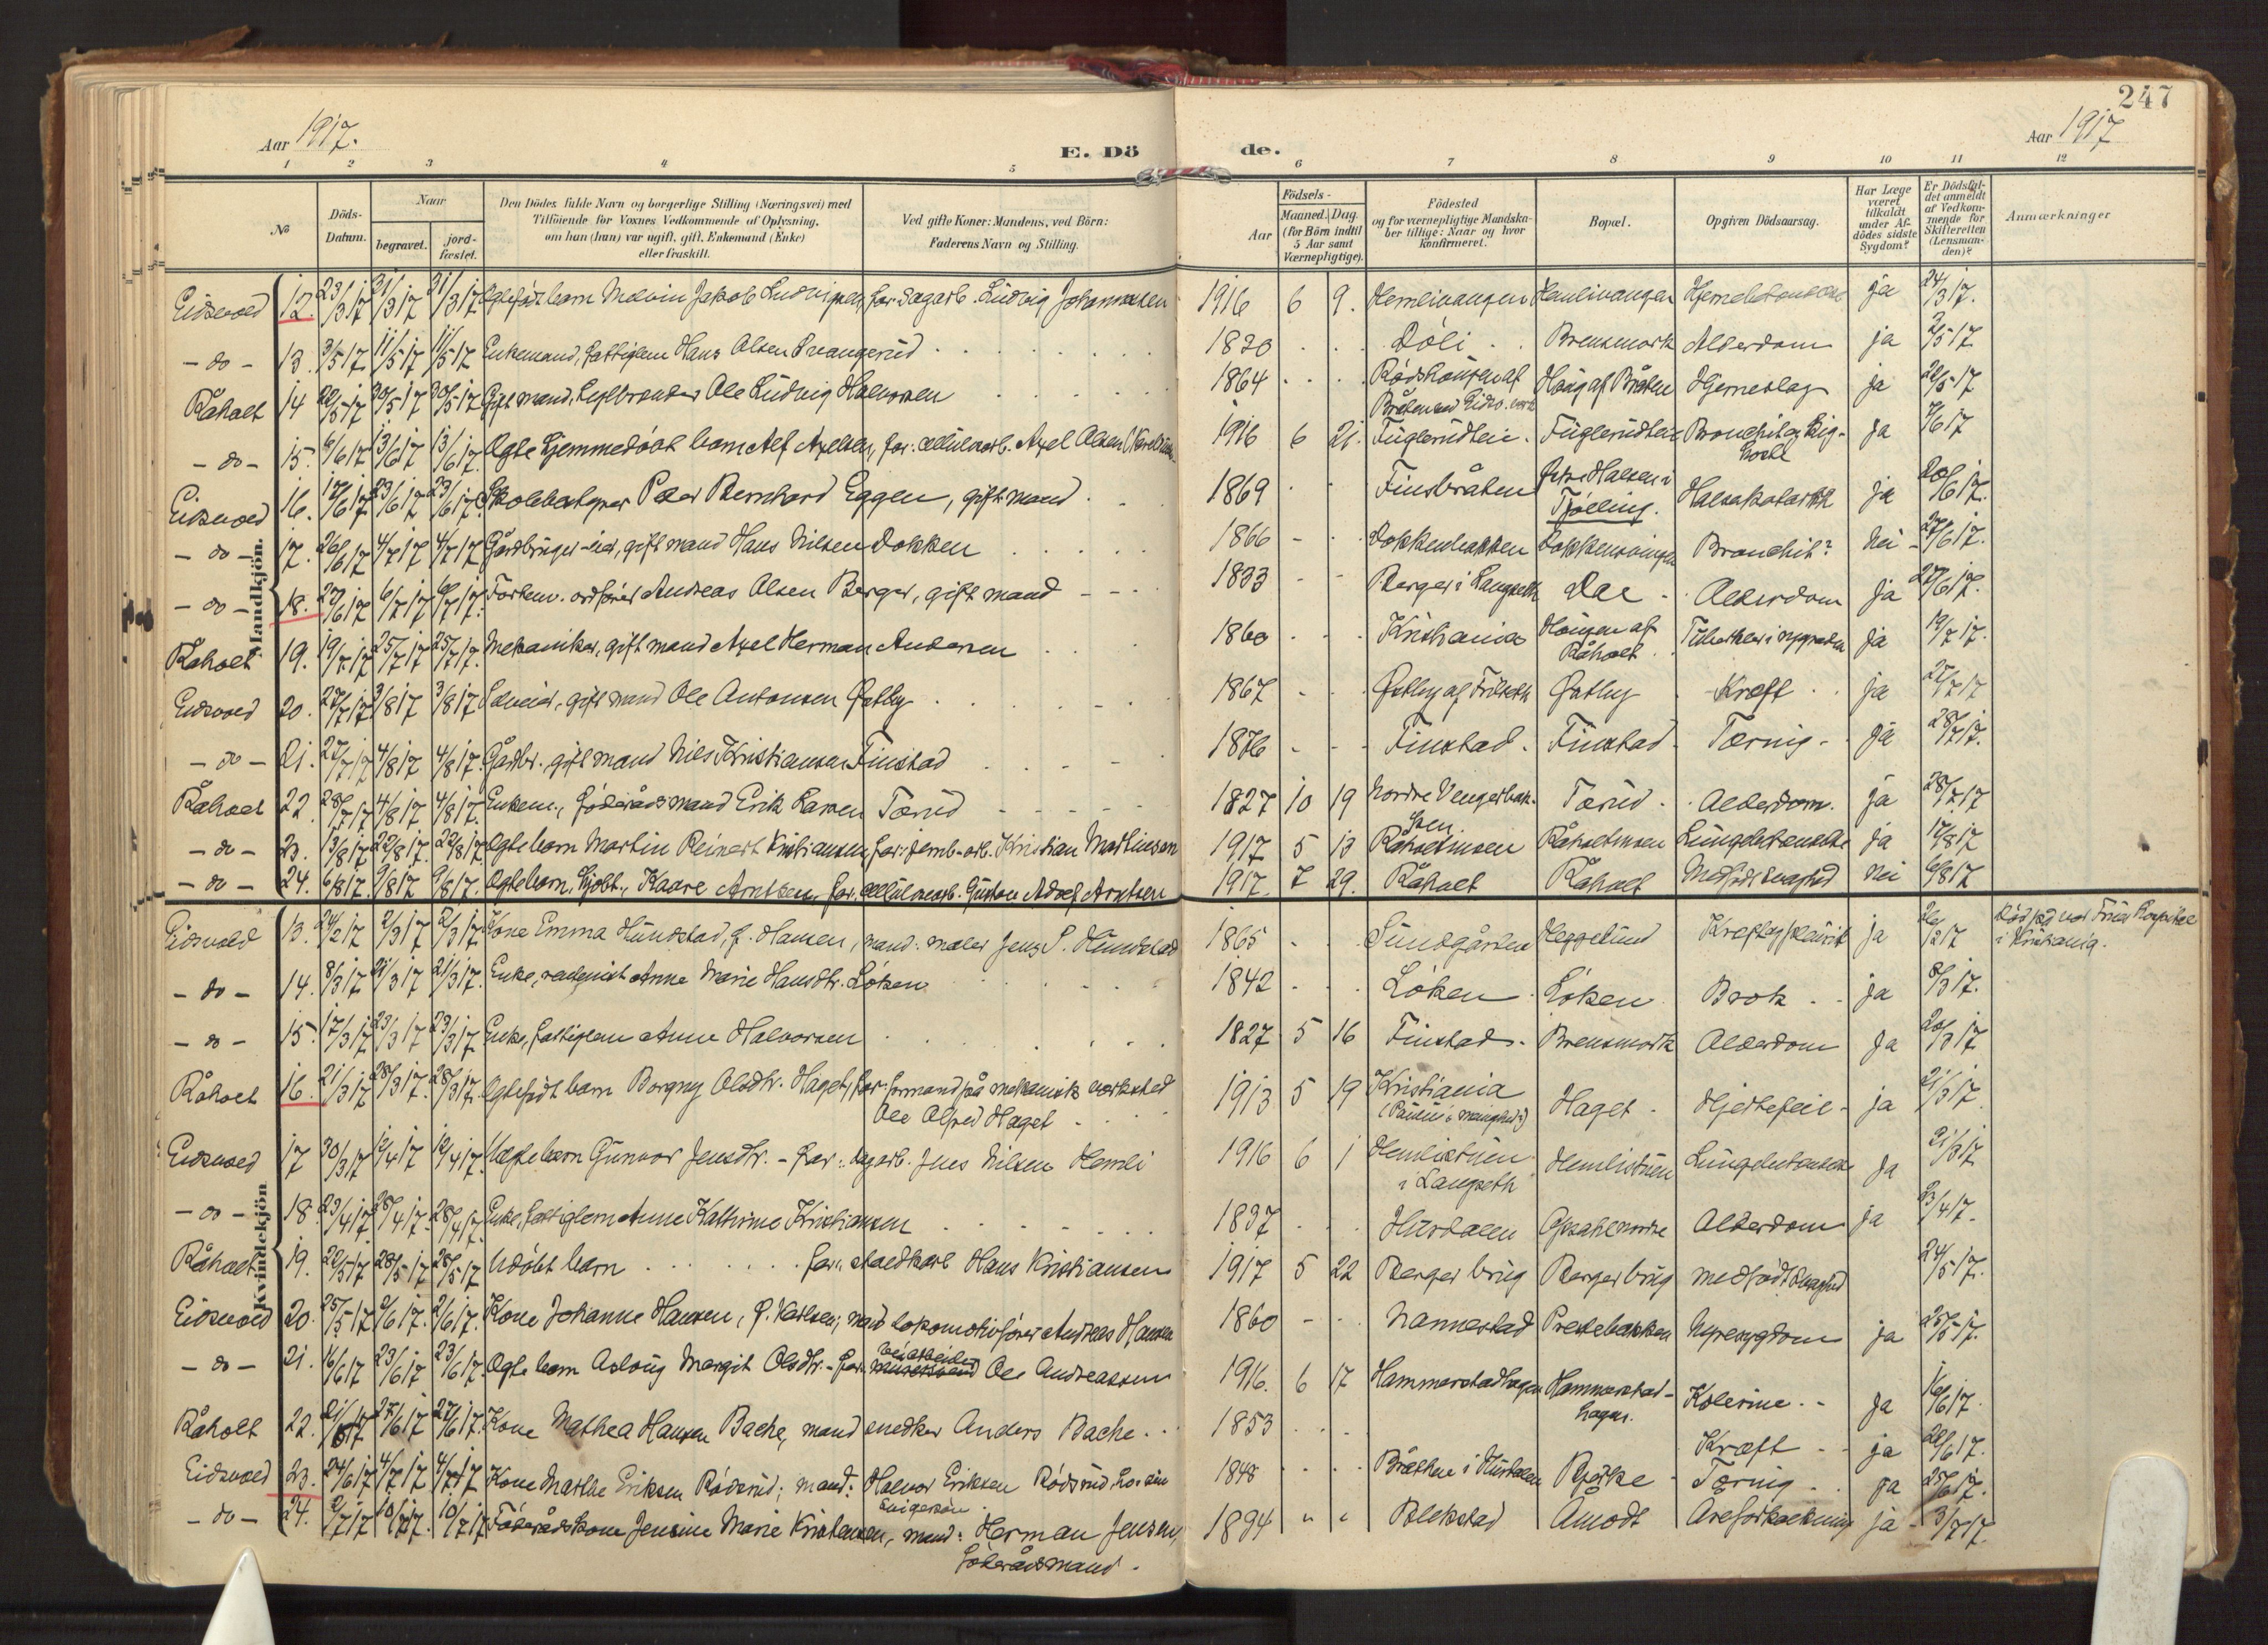 247
Aar 1917.
E. Dö de.
Aar 1917
1 2 3 4 5 6 7 8 9 10 11 12
No
Döds-Datum.
Naar
begravet.
jord-fæstet.
Den Dödes fulde Navn og borgerlige Stilling (Næringsvei) med Tilföiende for Voxnes Vedkommende af Oplysning, om han (hun) var ugift, gift, Enkemand (Enke) eller fraskilt.
Ved gifte Koner: Mandens, ved Börn: Faderens Navn og Stilling.
Födsels-
Aar
Maaned. Dag.
(for Börn indtil 5 Aar samt Værnepligtige).
Födested og for værnepligtige Mandskaber tillige: Naar og hvor Konfirmeret.
Bopæl.
Opgiven Dödsaarsag.
Har Læge været tilkaldt under Afdödes sidste Sygdom?
Er Dödsfaldet anmeldt af Vedkommende for Skifteretten (Lensmanden)?
Anmærkninger
Mandkjön.
Eidsvold 12. 23/3 17 31/3 17 31/3 17 Ægtefødt barn Melvin Jakob Ludvigsen, far: dagarb. Ludvig Johannessen 1916 6 9. Hemlivangen Hemlivangen Hjernebetændelse ja 24/3 17.
- do - 13. 3/5 17 11/5 17 11/5 17 Enkemand, fattiglem Hans Olsen Svangerud 1830 Döli Brensmork Alderdom ja 2/5 17
Råholt 14 22/5 17 30/5 17 30/5 17 Gift mand, Ole Ludvig Halvorsen 1864 Rödshöugen af Bråten ved Eidsv. verk Haug af Bråten Hjerneslag ja 22/5 17
- do - 15. 6/6 17 13/6 17 13/6 17 Ægte hjemmedöbt barn Alf Axelsen, far: cellulosearb. Axel Olsen 1916 6 21. Fuglerudteie Fuglerudteie Bronchit og Kighoste ja 7/6 17
Eidsvold 16. 17/6 17 23/6 17 23/6 17 Skolebestyrer Peter Bernhard Eggen, gift mand 1869 Finsbråten Östre Halsen i Tjølling. Halsekatarrh ja 20/6 17.
- do - 17. 26/6 17 4/7 17 4/7 17 Gårdbruger-eier, gift mand Hans Nilsen Dokken 1866 Dokkenbakken Dokkensvingen Bronchit? nei 27/6 17.
- do - 18. 27/6 17 6/7 17 6/7 17. Forhenv. ordförer Andreas Olsen Berger, gift mand 1833 Berger i Langseth Dal Alderdom ja 27/6 17.
Råholt 19. 19/7 17 25/7 17 25/7 17. Mekaniker, gift mand Axel Herman Andersen 1860 Kristiania Höugen af Råholt Tuberkler i ryggraden ja 19/7 17.
Eidsvold 20. 27/7 17 3/8 17 3/8 17 Selveier, gift mand Ole Antonsen Østby 1867 Østby af Østby Kræft ja 27/7 17
- do - 21. 27/7 17 4/8 17 4/8 17. Gårdbr. gift mand Nils Kristiansen Finstad 1876 Finstad Finstad Tæring ja 28/7 17.
Råholt 22. 28/7 17 4/8 17 4/8 17. Enkem., föderådsmand Erik Larsen Tærud 1827 10 19 Nordre Vengerbakken Tærud Alderdom. ja 28/7 17
- do - 23. 13/8 17 22/8 17. 22/8 17. Ægte barn Martin Reinert Kristiansen, far: jernb-arb. Kristian Martinsen 1917 5 13 Råholtmoen Råholtmoen Lungebetændelse ja 17/8 17
- do - 24. 6/8 17. 9/8 17 9/8 17. Ægte barn, hjdöbt., Kaare Arntsen, far: cellulosearb. Gustav Adolf Arntsen 1917. 7 29. Råholt Råholt Medfödt svaghed nei 6/8 17
Kvindekjön
Eidsvold 13. 24/2 17 2/3 17 2/3 17. Kone Emma Hundstad, f. Hansen, mand: maler Jens P. Hundstad 1865 Sundgården Heggelund Kræft og pleurit ja 26/2 17 Död ved vor Frues Hospital i Kristiania.
- do - 14. 8/3 17 21/3 17 21/3 17. Enke, Anne Marie Hansdtr. Löken 1842 Löken Löken Brok ja 8/3 17.
- do - 15. 17/3 17 23/3 17 23/3 17. Enke, fattiglem Anne Halvorsen 1827 5 16 Finstad Brensmork Alderdom ja 20/3 17
Råholt 16. 21/3 17 28/3 17. 28/3 17. Ægtefödt barn Borgny Olsdtr. Haget, far: formand på mekanisk verksted Ole Alfred Haget 1913 5 19 Kristiania (Paulus menighed) Haget Hjertefeil ja 21/3 17
Eidsvold 17 30/3 17 12/4 17 12/4 17. Uægte barn Gunvor Jensdtr. - far: dagarb. Jens Nilsen Hemli 1916 6 1 Hemlistuen i Langseth Hemlistuen Lungebetændelse ja 31/3 17
- do - 18. 23/4 17 28/4 17 28/4 17. Enke, fattiglem Anne Kathrine Kristiansen 1837 Hurdalen Alderdom ja 23/4 17.
Råholt 19. 22/5 17 28/5 17 28/5 17 Udöbt barn far: staldkarl Hans Kristiansen 1917 5 22 Berger brug Berger brug medfödt svaghed 24/5 17.
Eidsvold 20. 25/5 17 2/6 17. 2/6 17. Kone Johanne Hansen, f. Karlsen; mand lokomotivförer Andreas Hansen 1860 Nannestad Prestebakken Nyresygdom ja 25/5 17.
- do - 21. 16/6 17 23/6 17 23/6 17. Ægte barn Aslaug Margit Olsdtr. - far: veiarbeider Ole Andreassen 1916. 6 17 Hammerstadhagen Hammerstad-hagen. Kolerine ja 16/6 17.
Råholt 22. 21/6 17 27/6 17 27/6 17. Kone Mathea Hansen Bache, mand snedker Anders Bache 1853 Kræft ja 22/6 17.
Eidsvold 23. 24/6 17 4/7 17 4/7 17 Kone Marthe Eriksen Rödsrud; mand: Halvor Eriksen Rödsrud, hos sin svigersön. 1848 Bråthen i Hurdalen Bjerke Tæring ja 25/6 17.
- do - 24. 2/7 17 10/7 17. 10/7 17 Föderådskone Jensine Marie Kristensen, mand: Herman Jensen, föderådsmand. 1894 " " Blekstad Åmodt Areforkalkning ja 3/7 17.